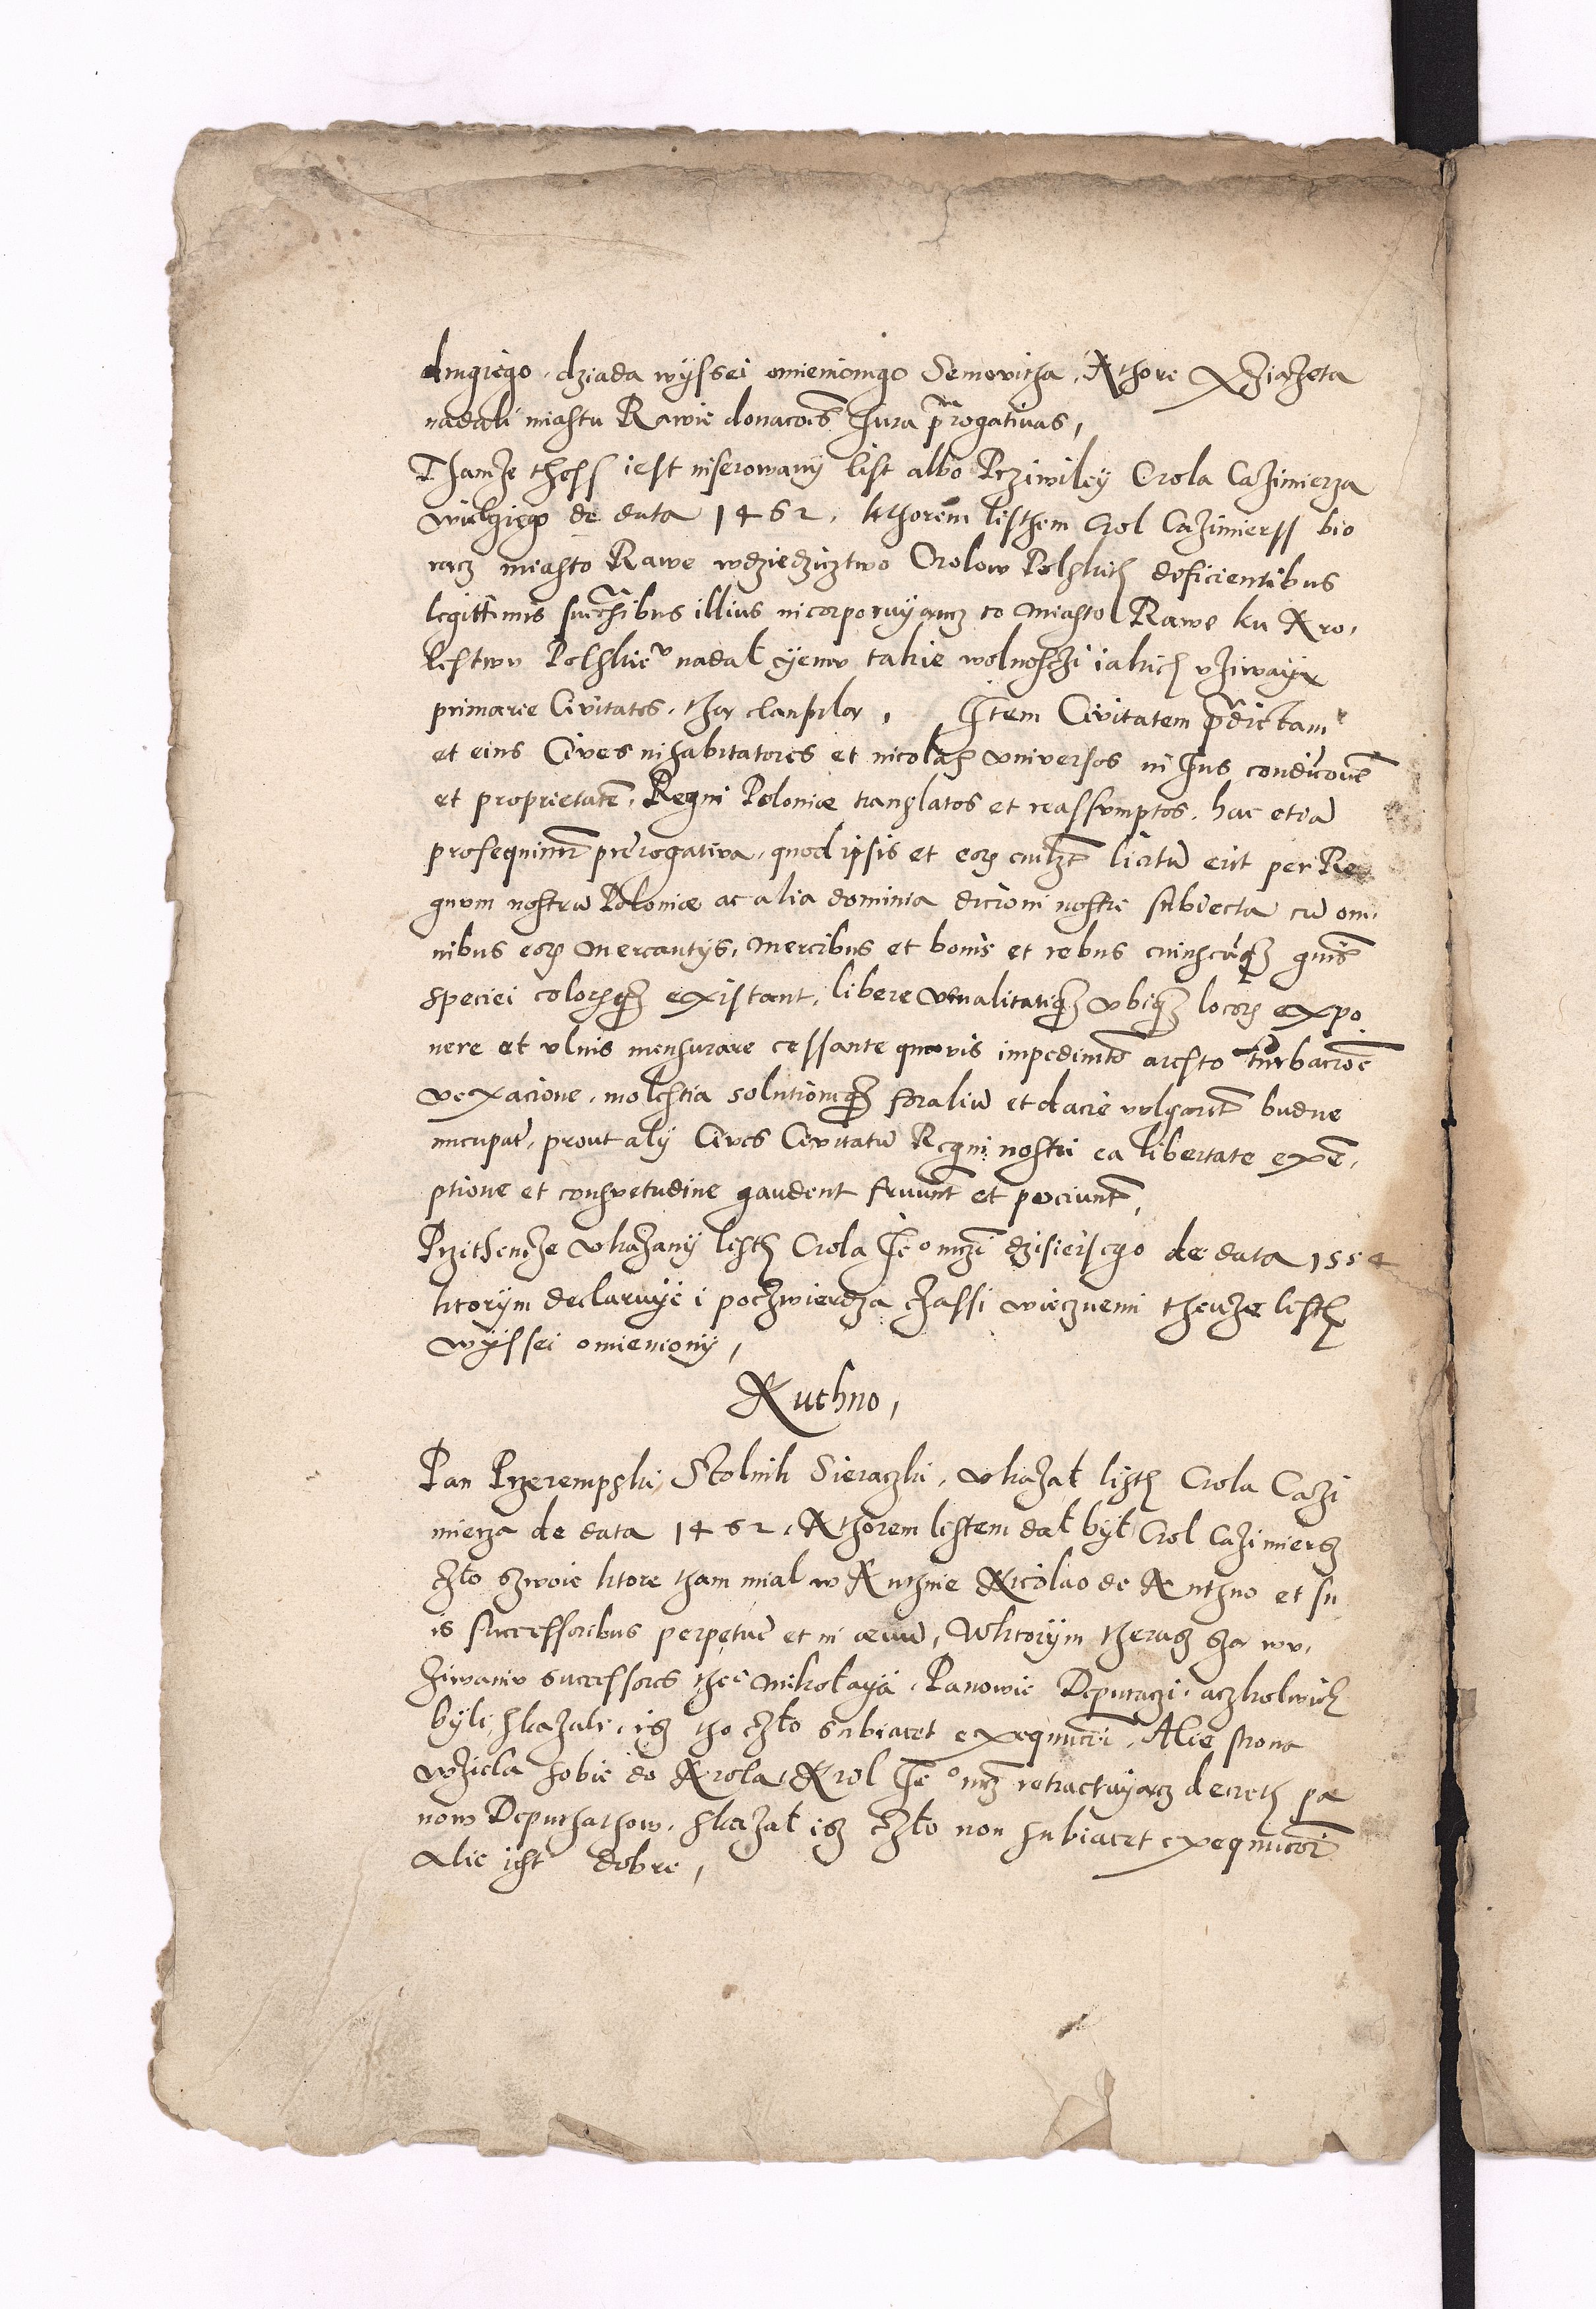 drugiego, dziada wyssei omienionigo Semovitha, Kthore Xiążeta
nadali miastu Rawie donacoes Iura prerogativas,
Thamże thess iest inserowany list albo Prziwiley Crola Cazimierza
wielgiego de data 1462, kthorem listhem Crol Cazimierss bio
racz miasto Rawe wdziedzicztwo Crolow Polskich deficientibus
legittimis successoribus illius incorporuyancz to miasto Rawe ku Kro,
lestwu Polskieu nadał yemu takie wolnosczi iakich vżiwaya
primarie Civitates, tha clausula, Item Civitatem predictam
et eius Cives inhabitatores et incolas vniversos in Ius condicoue
et proprietate, Regni Poloniæ translatos et reassumptos, hac etia
prosequimur prerogativa, quod ipsis et eor cuilzt licitu erit per Re
gnum nostru Poloniæ ac alia dominia dicioni nostre subiecta cu om,
nibus eor Mercantys, mercibus et bonis et rebus cuiuscuqz gnis
speciei colorisqz existant, libere venalitatiqz vbiqz locor expo
nere et vlnis mensurare cessante quovis impedimto aresto turbacioe
vexacione, molestia solutioneqz foraliu et dacie vulgarit budne
nucupat, prout aly Cives Civitatu Regni nostri ea libertate exe,
ptione et consvetudine gaudent fruunt et pociunt,
Przithemże vkażany listh Crola Ieo mczi dzisieisego de data 1554
ktorym declaruye i poczwierdza czassi wiecznemi thenże listh
wyssei omieniony,
Kuthno,
Pan Przerempski, Stolnik Sieraczki, vkazał listh Crola Cazi
mierza de data 1462, Kthorem listem dał był Crol Cazimiersz
czło szwoie ktore tham miał w Kuthnie Nicolao de Kuthno et su
is successoribus perpetue et in ævu, Wktorym theraz sza wu,
żiwaniu successores theo Mikołaya, Panowie Deputaczi, aczkolwiek
byli, skazali, isz tho czło subiacet exequucoi, Alie strona
wzieła sobie do Krola, Krol Ieo mcz retractuyacz decreth pa
now Deputhathow, skazał isz czło non subiacet exequucoi
Alie ist dobre,